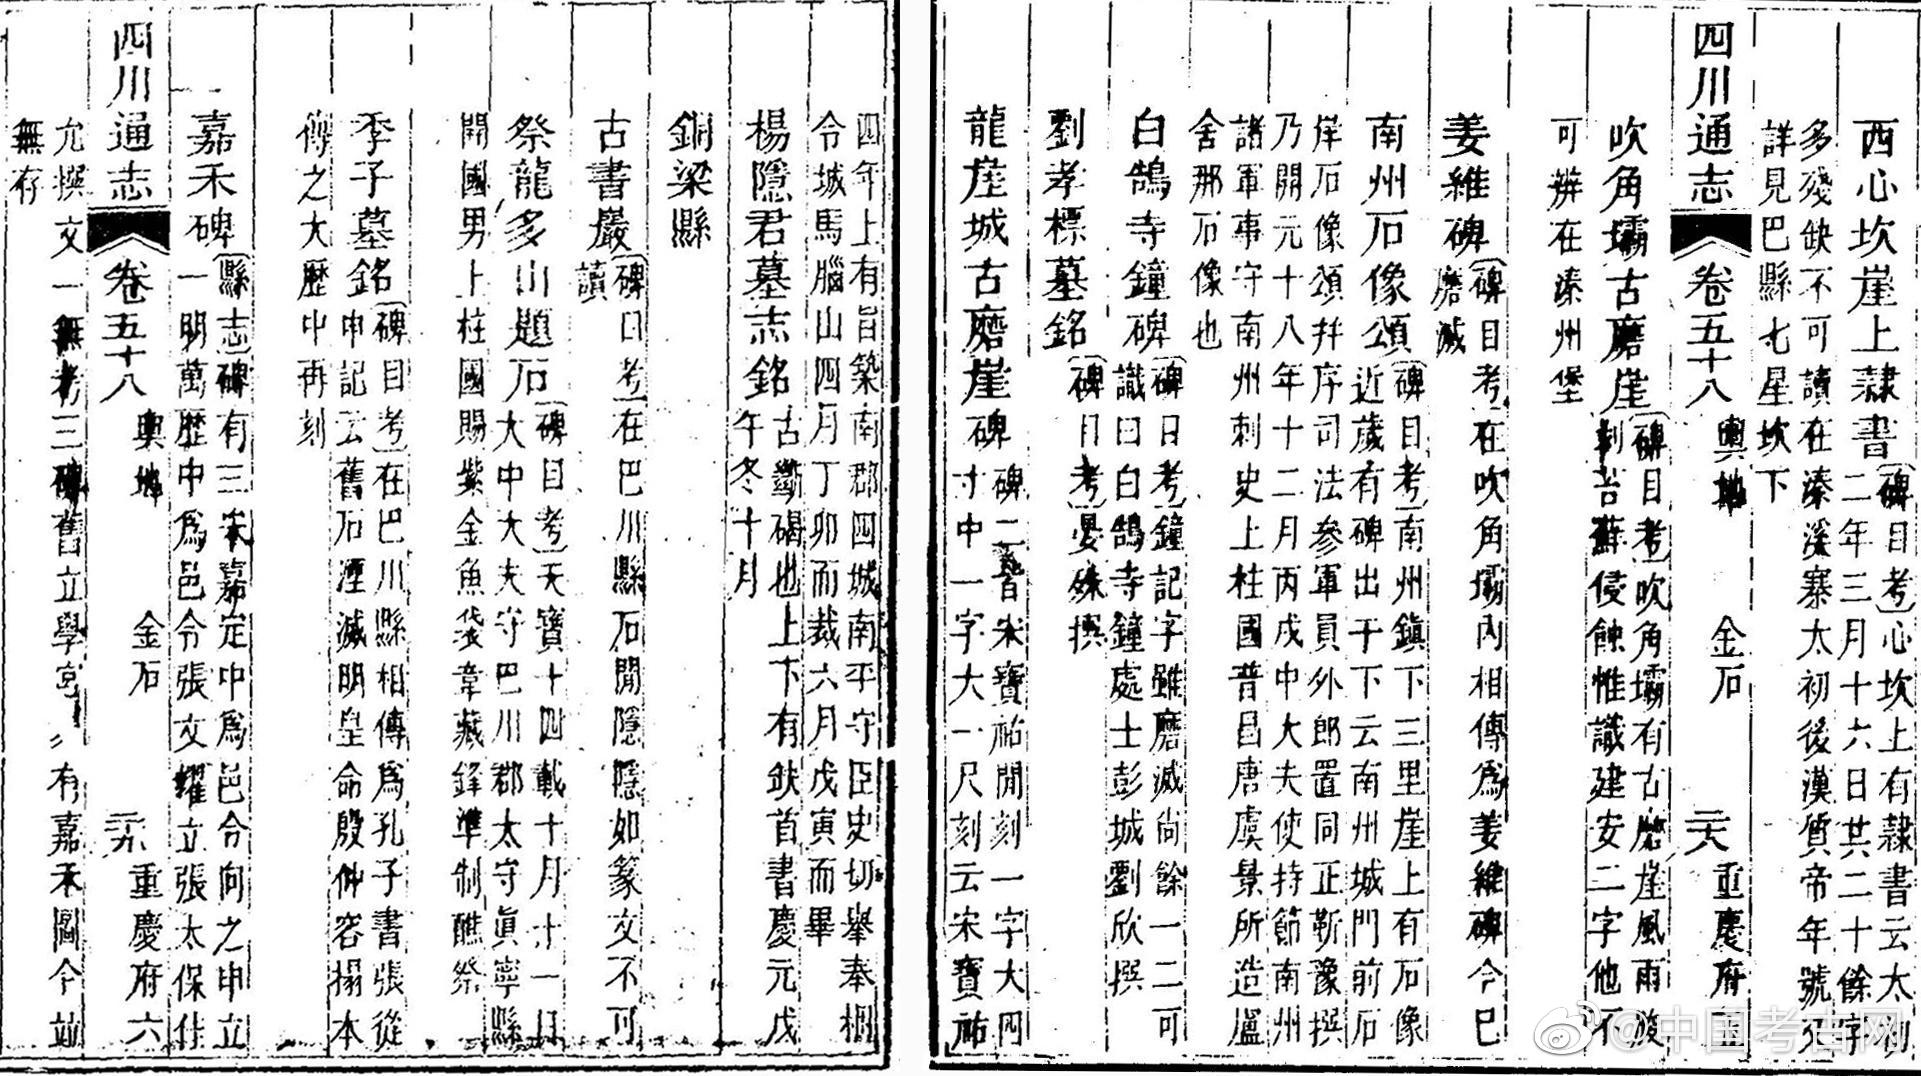 西心坎崖上隸書〔碑目考〕心坎上有隸書云太初
二年三月十六日其二十餘字
多殘缺不可讀在溱溪寨太初後漢質帝年號
詳見巴縣七星坎下
四川通志 卷五十八 輿地 金石 二六 重慶府五
吹角壩古磨崖〔碑目考〕吹角壩有古磨崖風雨
剝苔蘚侵蝕惟識建安二字他不
可辨在溱州堡
姜維碑〔碑目考〕在吹角壩內相傳爲姜維碑今已
磨滅
南州石像頌〔碑目考〕南州鎮下三里崖上有石像
近歲有碑出于下云南州城門前石
岸石像頌并序司法參軍員外郎置同正靳豫撰
乃開元十八年十二月丙戌中大夫使持節南州
諸軍事守南州刺史上柱國晉昌唐虞景所造盧
舍那石像也
白鵠寺鐘碑〔碑目考〕鐘記字雖磨滅尚餘一二可
識曰白鵠寺鐘處士彭城劉欣撰
劉孝標墓銘〔碑目考〕晏殊撰
龍崖城古磨崖碑 碑二皆宋寶祐閒刻一字大四
寸中一字大一尺刻云宋寶祐
四年上有旨築南郡四城南平守臣史切舉奉
令城馬腦山四月丁卯而裁六月戊寅而畢
楊隱君墓志銘 古斷碣也上下有缺首書慶元戊
午冬十月
銅梁縣
古書巖〔碑目考〕在巴川縣石閒隱隱如篆文不可
讀
祭龍多山題石〔碑目考〕天寶十四載十月十一日
大中大夫守巴川郡太守眞寧縣
開國男上柱國賜紫金魚袋韋藏鋒準制醮祭
季子墓銘〔碑目考〕在巴川縣相傳爲孔子書張從
申記云舊石湮滅明皇命殷仲容搨本
傳之大歷中再刻
嘉禾碑〔縣志〕碑有三宋嘉定中爲邑令向之申立
一明萬歷中爲邑令張文耀立張太保佳
四川通志 卷五十八 輿地 金石 二九 重慶府六
允撰文一無考三碑舊立學宮 有嘉禾圖今並
無存
@中国考古网